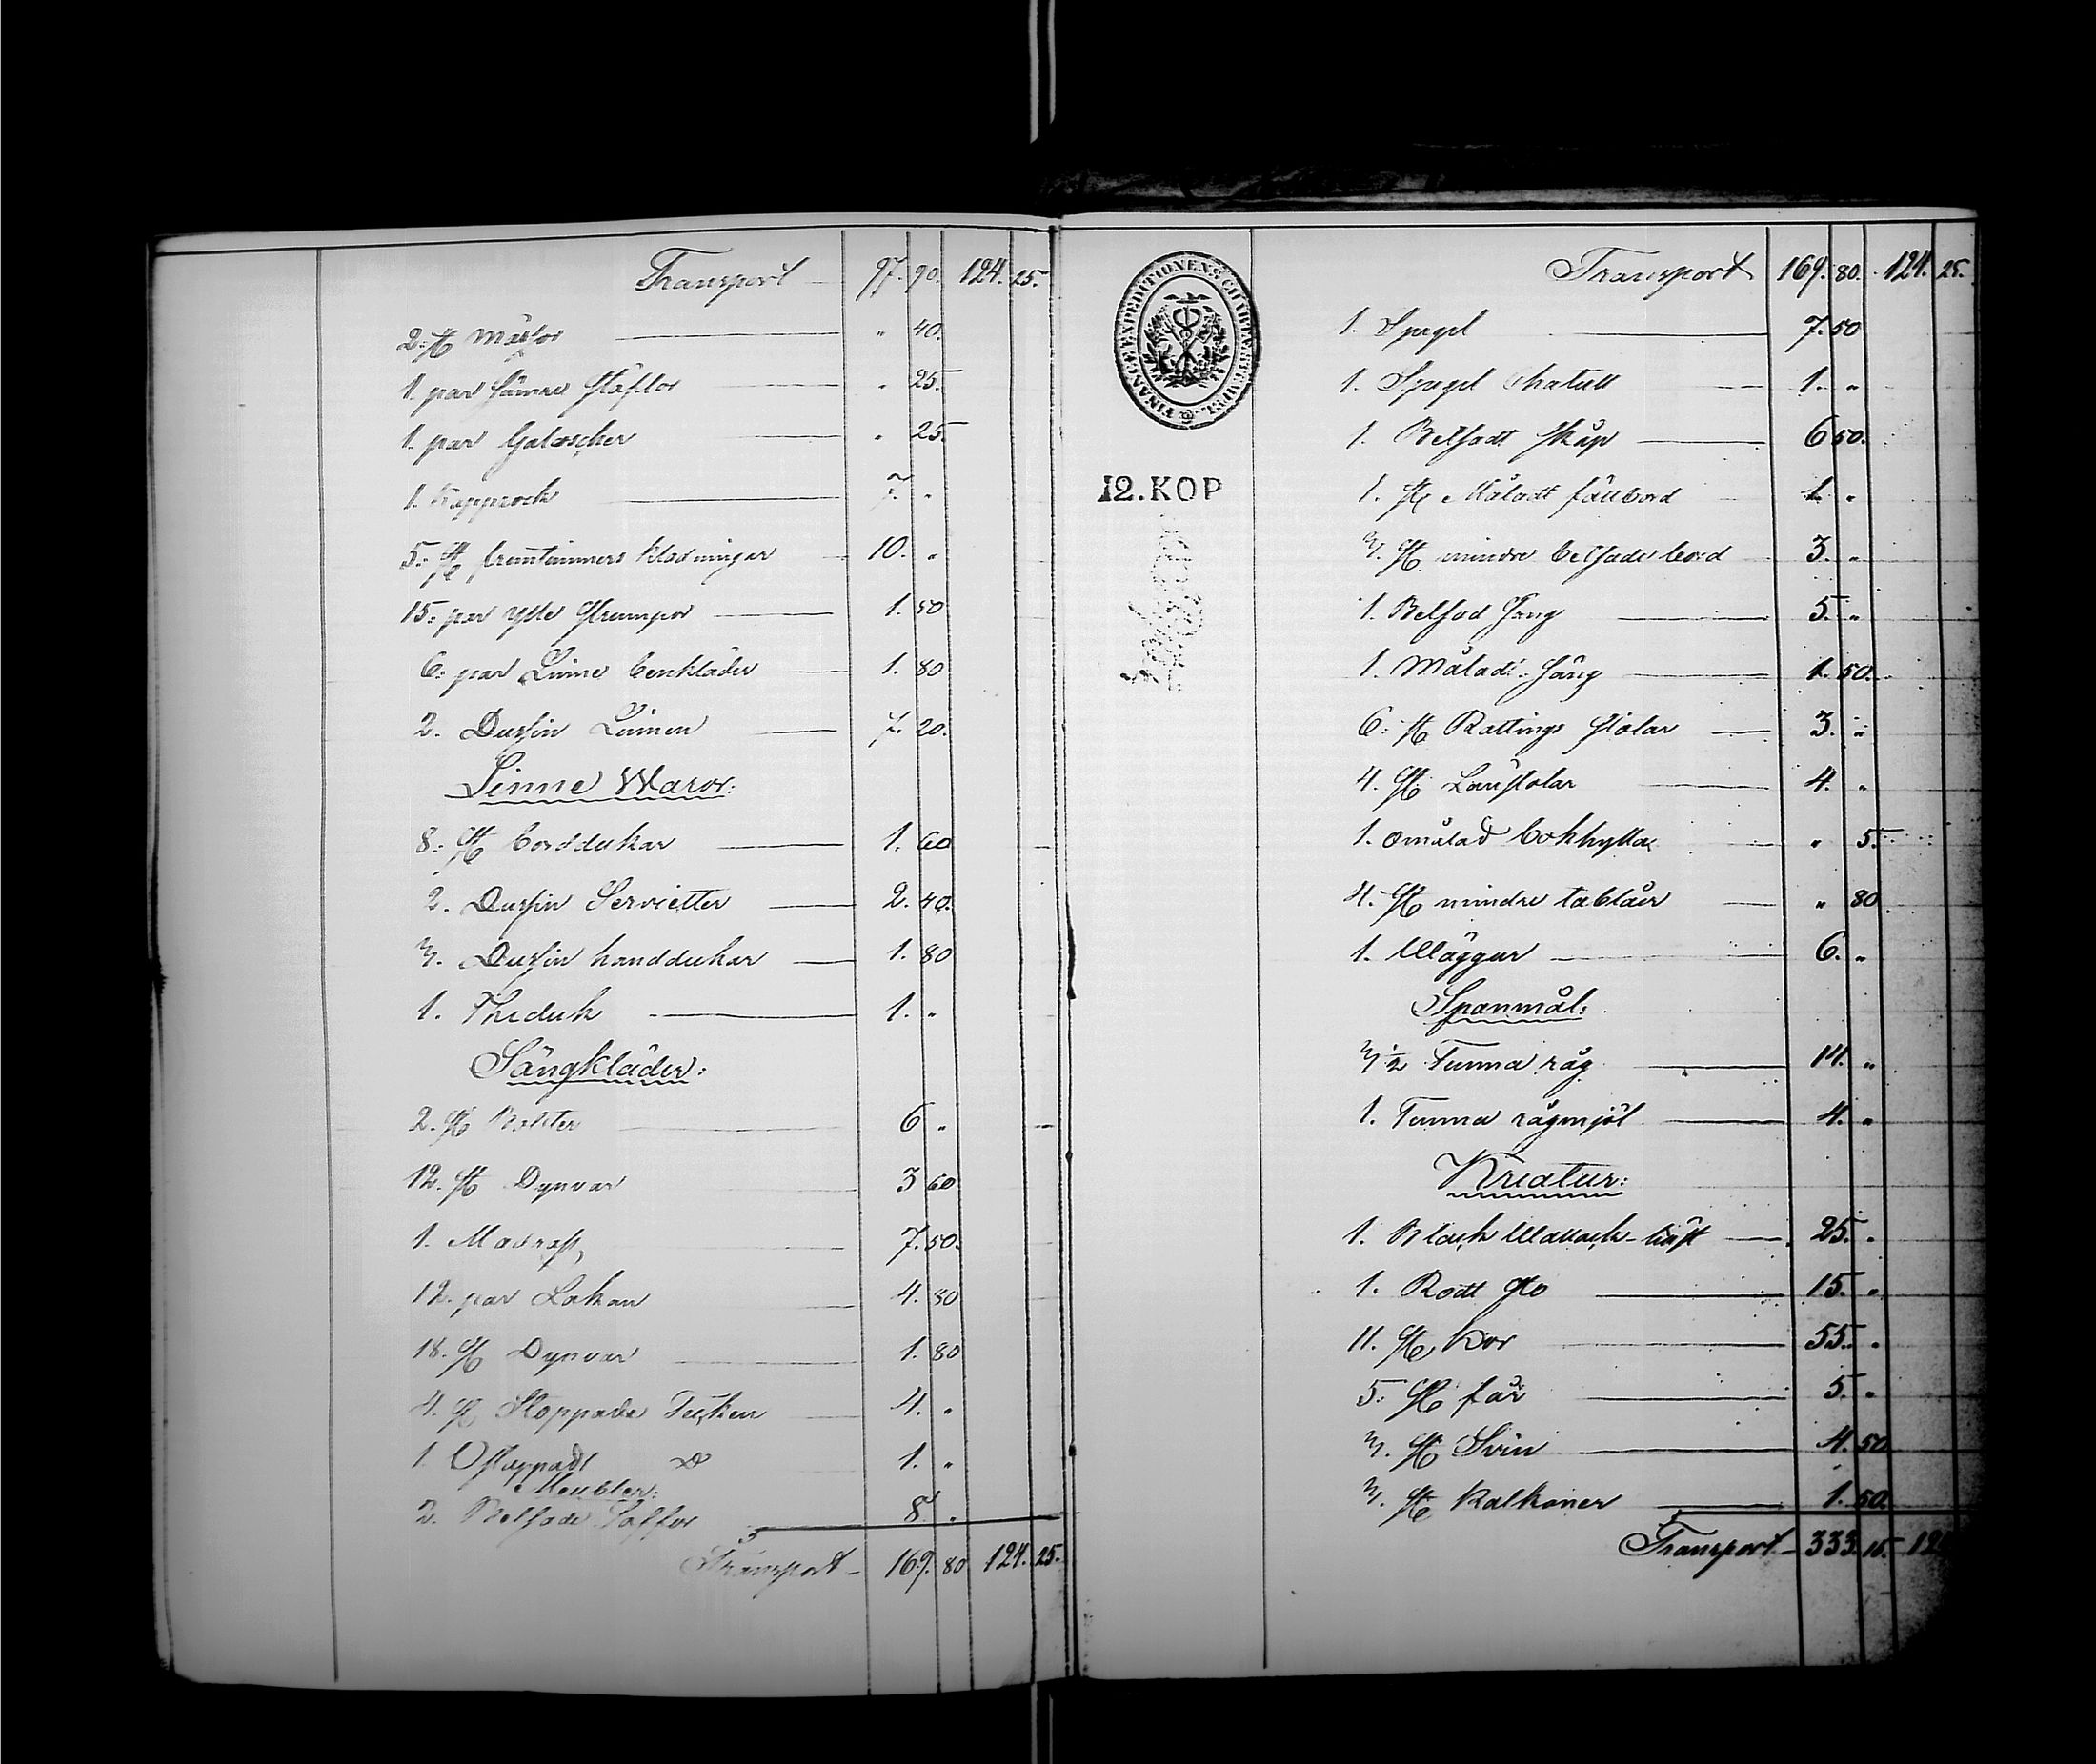 Transport 97. 90. 124. 25.
2. st Mössor " 40.
1. par sämre stöflor " 25.
1. par Galoscher " 25.
1. Kapprock 7. "
5. st fruntimmers Klädningar 10. "
15. par ylle Strumpor 1. 50
6. par Linne benkläder 1. 80
2. Dussin Linnen 7. 20.
Linne Waror:
8. st borddukar 1. 60
2. Dussin Servietter 2. 40.
3. Dussin handdukar 1. 80
1. Theduk 1. "
Sängkläder:
2. st Bolster 6 "
12. st Dynvar 3 60
1. Madrass 7. 50.
12. par Lakan 4. 80
18. st Dynvar 1. 80
4. st Stoppade Täcken 4. "
1. Ostoppadt do 1. "
Meubler:
2. Betsade Soffor 8 "
Transport 169. 80 124. 25.
FINANCE EXPEDITIONENS CHARTÆ STEMPEL
12. KOP
Transport 169. 80. 124. 25.
1. Spegel 7. 50
1. Spegel Chatull 1. "
1. Betsadt skåp 6 50.
1. st Måladt fällbord 1. "
3. st mindre betsade bord 3. "
1. Betsad Säng 5. "
1. Målad Säng 1. 50.
6. st Rottings stolar 3. "
4. st Länstolar 4. "
1. omålad bokhylla " 5.
4. st mindre tablåer " 80.
1. Wäggur 6. "
Spanmål:
3½ Tunna råg 14. "
1. Tunna rågmjöl 4. "
Kreatur:
1. Black Wallack-häst 25. "
1. Rödt sto 15. "
11. st Kor 55. "
5. st får 5. "
3. st Svin 4. 50
3. st Kalkoner 1. 50.
Transport 333. 15.